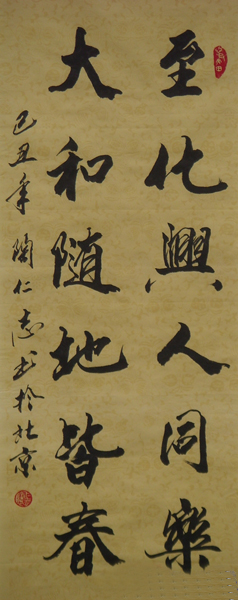 至化興人同樂
大和随地皆春
己丑年陶仁志书於北京